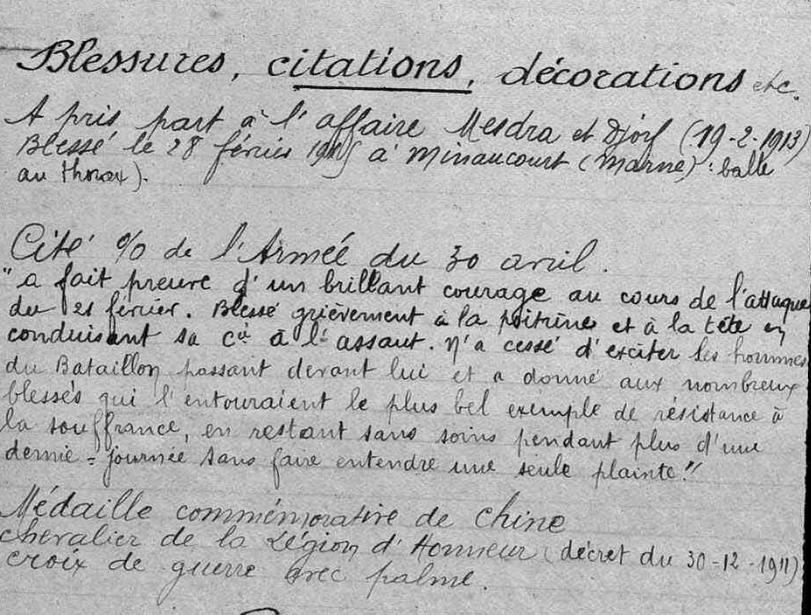 Blessures, citations, décorations etc.
A pris part à l'affaire Mesdra et Djorf (19-2-1913)
Blessé le 28 février 1915 à Minaucourt (Marne) : balle
au thorax).
Cité % de l'Armée du 30 avril.
"a fait preuve d'un brillant courage au cours de l'attaque
du 21 février. Blessé grièvement à la poitrine et à la tête en
conduisant sa Cie à l'assaut. N'a cessé d'exciter les hommes
du Bataillon passant devant lui et a donné aux nombreux
blessés qui l'entouraient le plus bel exemple de résistance à
la souffrance, en restant sans soins pendant plus d'une
demie-journée sans faire entendre une seule plainte."
Médaille commémorative de Chine
Chevalier de la Légion d'Honneur (décret du 30-12-1911)
Croix de guerre avec palme.